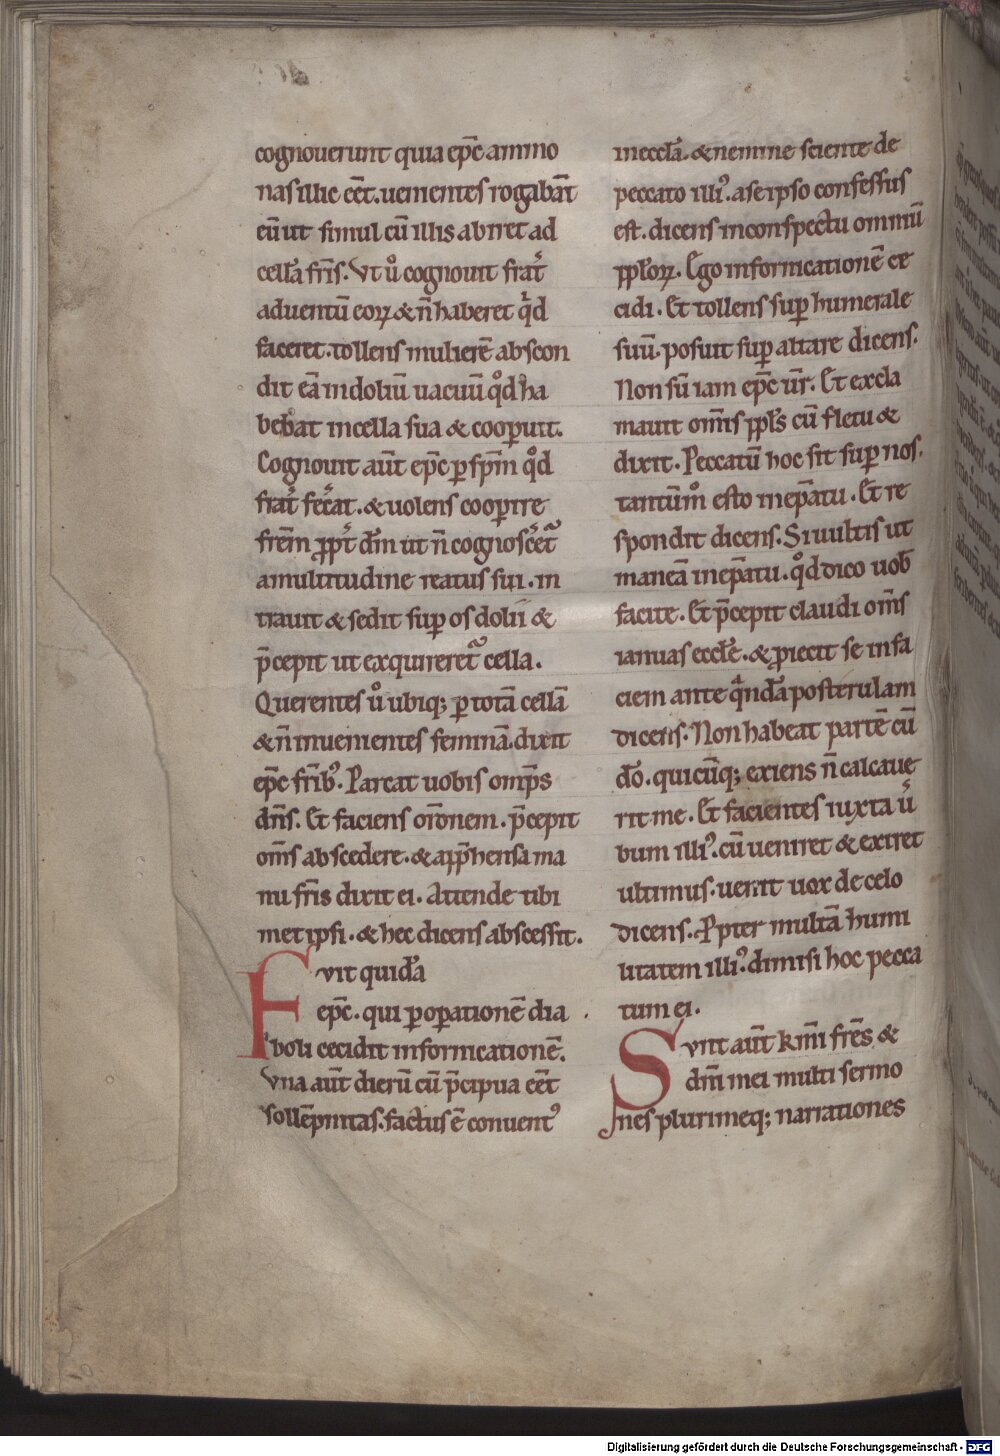 cognouerunt quia ep̄c ammo
nas illic eēt. uenientes rogabāt
eū ut simul cū illis abiret ad
cellā fr̄is. Vt ů cognouit frat̄
aduentū eoꝝ & n̄ haberet qͥd
faceret. tollens mulierē abscon
dit eā in doliū uacuū qͦd ha
bebat in cella sua & cooꝑuit.
Cognouit aūt ep̄c ꝑ sp̄m qͦd
frat̄ fec̄at. & uolens cooꝑire
frēm ꝓpt̄ dm̄ ut n̄ cognosc̄eͭ
a multitudine reatus sui. in
trauit & sedit suꝑ os dolii &
p̄cepit ut exquireretᷣ cella.
Querentes ů ubiq; ꝑ totā cellā
& n̄ inuenientes feminā. dixit
ep̄c fr̄ibꝰ. Parcat uobis omp̄s
dn̄s. Et faciens or̄onem. p̄cepit
om̄s abscedere. & app̄hensa ma
nu fr̄is dixit ei. Attende tibi
met ipsi. & hec dicens abscessit.
Fvit quidā
ep̄c. qui ꝑ oꝑationē dia
boli cecidit in fornicationē.
Vna aūt dierū cū p̄cipua eēt
sollēpnitas. factus ē conuentꝰ
in eccl̄a. & nemine sciente de
peccato illiꝰ. a se ipso confessus
est. dicens in conspectu omniū
ppl̄oꝝ. Ego in fornicationē ce
cidi. Et tollens suꝑ humerale
suū. posuit suꝑ altare dicens.
Non sū iam ep̄c ur̄. Et excla
mauit om̄is ppl̄s cū fletu &
dixit. Peccatū hoc sit suꝑ nos.
tantūmͦ esto in ep̄atu. Et re
spondit dicens. Si uultis ut
maneā in ep̄atu. qͦd dico uob̄
facite. Et p̄cepit claudi om̄s
ianuas eccl̄e. & ꝓiecit se in fa
ciem ante qͣndā posterulam
dicens. Non habeat partē cū
dō. quicūq; exiens n̄ calcaue
rit me. Et facientes iuxta u̅
bum illiꝰ. cū ueniret & exiret
ultimus. uenit uox de celo
dicens. Ppter multā humi
litatem illiꝰ. dimisi hoc pecca
tum ei.
Svnt aūt km̄i frēs &
dm̄ mei multi sermo
nes plurimeq; narrationes
Digitalisierung gefördert durch die Deutsche Forschungsgemeinschaft - DFG